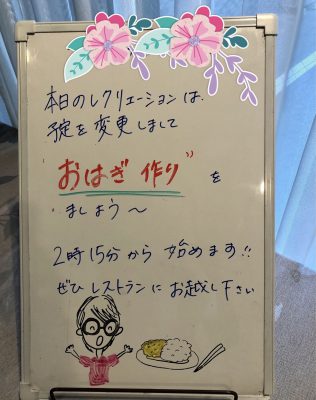 本日のレクリエーションは、
予定を変更しまして
"おはぎ作り"を
しましょう〜
2時15分から始めます!!
ぜひレストランにお越し下さい